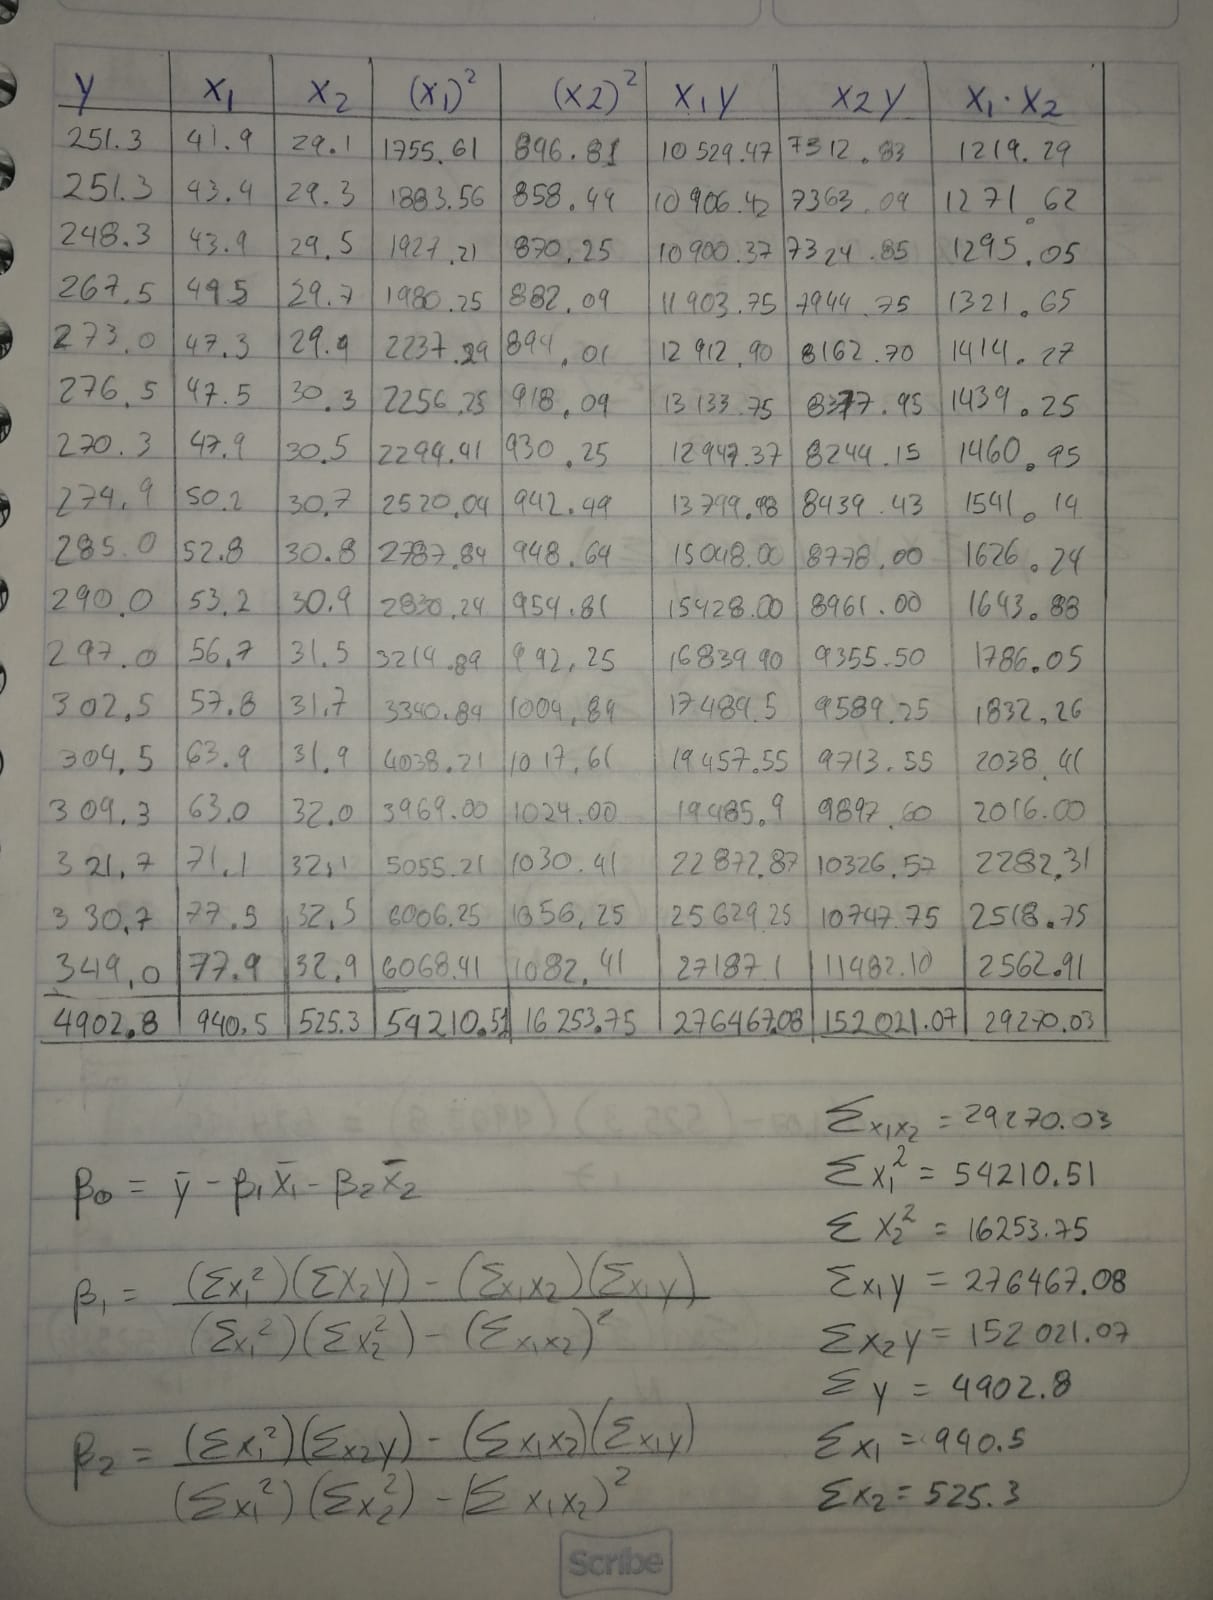 y x₁ x₂ (x₁)² (x2)² x₁y x2y x₁·x₂
251.3 41.9 29.1 1755.61 896.81 10529.47 7312.83 1219.29
251.3 43.4 29.3 1883.56 858.49 10906.42 7363.09 1271.62
248.3 43.9 29.5 1927.21 870.25 10900.37 7324.85 1295.05
267.5 495 29.7 1980.25 882.09 11903.75 7944.75 1321.65
273.0 47.3 29.9 2237.29 894.01 12912.90 8162.70 1414.27
276.5 47.5 30.3 2256.25 918.09 13133.75 8377.95 1439.25
270.3 47.9 30.5 2294.41 930.25 12947.37 8244.15 1460.95
274.9 50.2 30.7 2520.04 942.49 13799.98 8439.43 1541.14
285.0 52.8 30.8 2787.84 948.64 15048.00 8778.00 1626.24
290.0 53.2 30.9 2830.24 954.81 15428.00 8961.00 1643.88
297.0 56.7 31.5 3214.89 992.25 16839.90 9355.50 1786.05
302.5 57.8 31.7 3340.84 1004.89 17484.5 9589.25 1832.26
304.5 63.9 31.9 4038.21 1017.61 19457.55 9713.55 2038.41
309.3 63.0 32.0 3969.00 1024.00 19485.9 9897.60 2016.00
321.7 71.1 32.1 5055.21 1030.41 22872.87 10326.57 2282.31
330.7 77.5 32.5 6006.25 1056.25 25629.25 10747.75 2518.75
349.0 77.9 32.9 6068.41 1082.41 27187.1 11482.10 2562.91
4902.8 940.5 525.3 54210.51 16253.75 276467.08 152021.07 29270.03
Σx₁x₂ = 29270.03
β₀ = ȳ - β₁x̄₁ - β₂x̄₂
Σx₁² = 54210.51
Σx₂² = 16253.75
β₁ = (Σx₁²)(Σx₂y) - (Σx₁x₂)(Σx₁y)
(Σx₁²)(Σx₂²) - (Σx₁x₂)²
Σx₁y = 276467.08
Σx₂y = 152021.07
Σy = 4902.8
β₂ = (Σx₁²)(Σx₂y) - (Σx₁x₂)(Σx₁y)
(Σx₁²)(Σx₂²) - (Σx₁x₂)²
Σx₁ = 940.5
Σx₂ = 525.3
Scribe